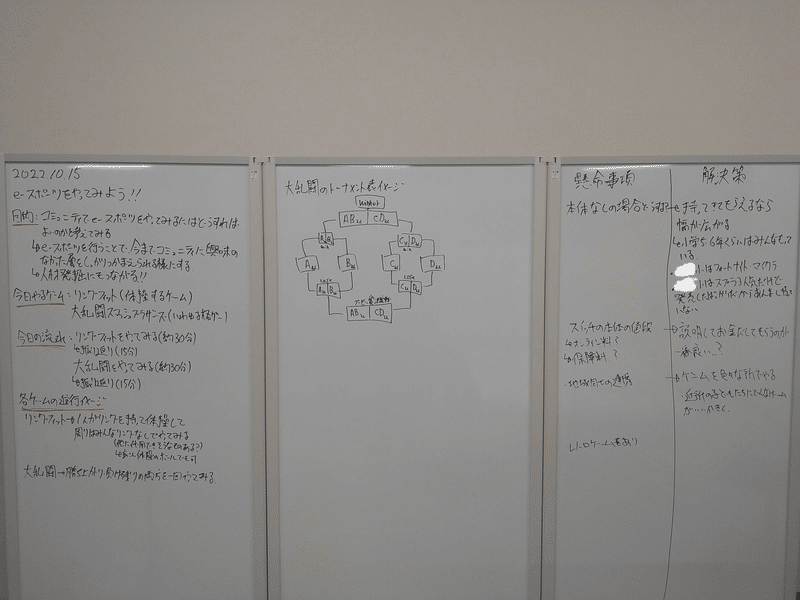 2022.10.15
e-スポーツをやってみよう!!
目的:コミュニティでe-スポーツをやってみるにはどうすれば
よいのかを考えてみる
↳e-スポーツを行うことで、今までコミュニティに興味の
なかった層をしっかりつかまえられる様にする
↳人材発掘にもつながる!!
今日やるゲーム:リングフィット(体験するゲーム)
大乱闘スマッシュブラザーズ
今日の流れ:リングフィットをやってみる(約30分)
↳振り返り(15分)
大乱闘をやってみる(約30分)
↳振り返り(15分)
各ゲームの進行イメージ
リングフィット→1人がリングを持って体験して
周りはみんなリングなしでやってみる
大乱闘→勝ち上がり・負け残りの両方を一回やってみる
大乱闘のトーナメント表イメージ
winner
AB CD
A B
C D
A
B
C
D
A B
C D
AB CD
懸命事項
解決策
本体なしの場合どうする
→持ってきてもらえるなら
幅が広がる
↳小学5 6年くらいはみんなもって
いる
にはフォートナイト マイクラ
はスプラ3人気だけど
いない
スイッチの本体の値段
↳オンライン料?
↳保障料?
→説明してお金だしてもらうのが
一番良い…?
・地域間での連携
→ゲームを色々な所でやる
・近所の子どもたちにどんなゲーム
がいいかきく
レトロゲーム